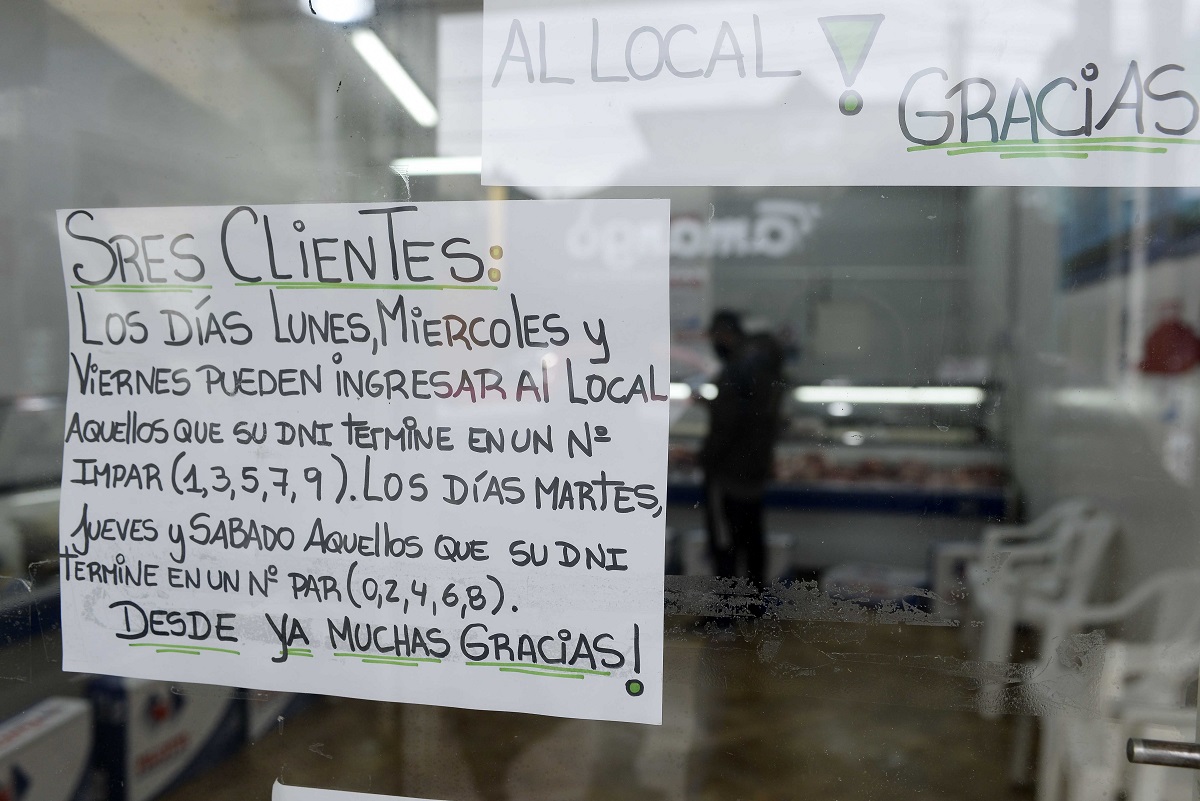 AL LOCAL !
GRACiAS
SRES CLiENTES:
LOS DÍAS LUNES, MiERCOLES y
ViERNES PUEDEN iNGRESAR Al LOCAL
AQUEllOS QUE SU DNI TERMiNE EN UN Nº
IMPAR (1,3,5,7,9). LOS DÍAS MARTES,
JUEVES y SABADO AQUEllOS QUE SU DNI
TERMiNE EN UN Nº PAR (0,2,4,6,8).
DESDE YA MUCHAS GRACiAS!